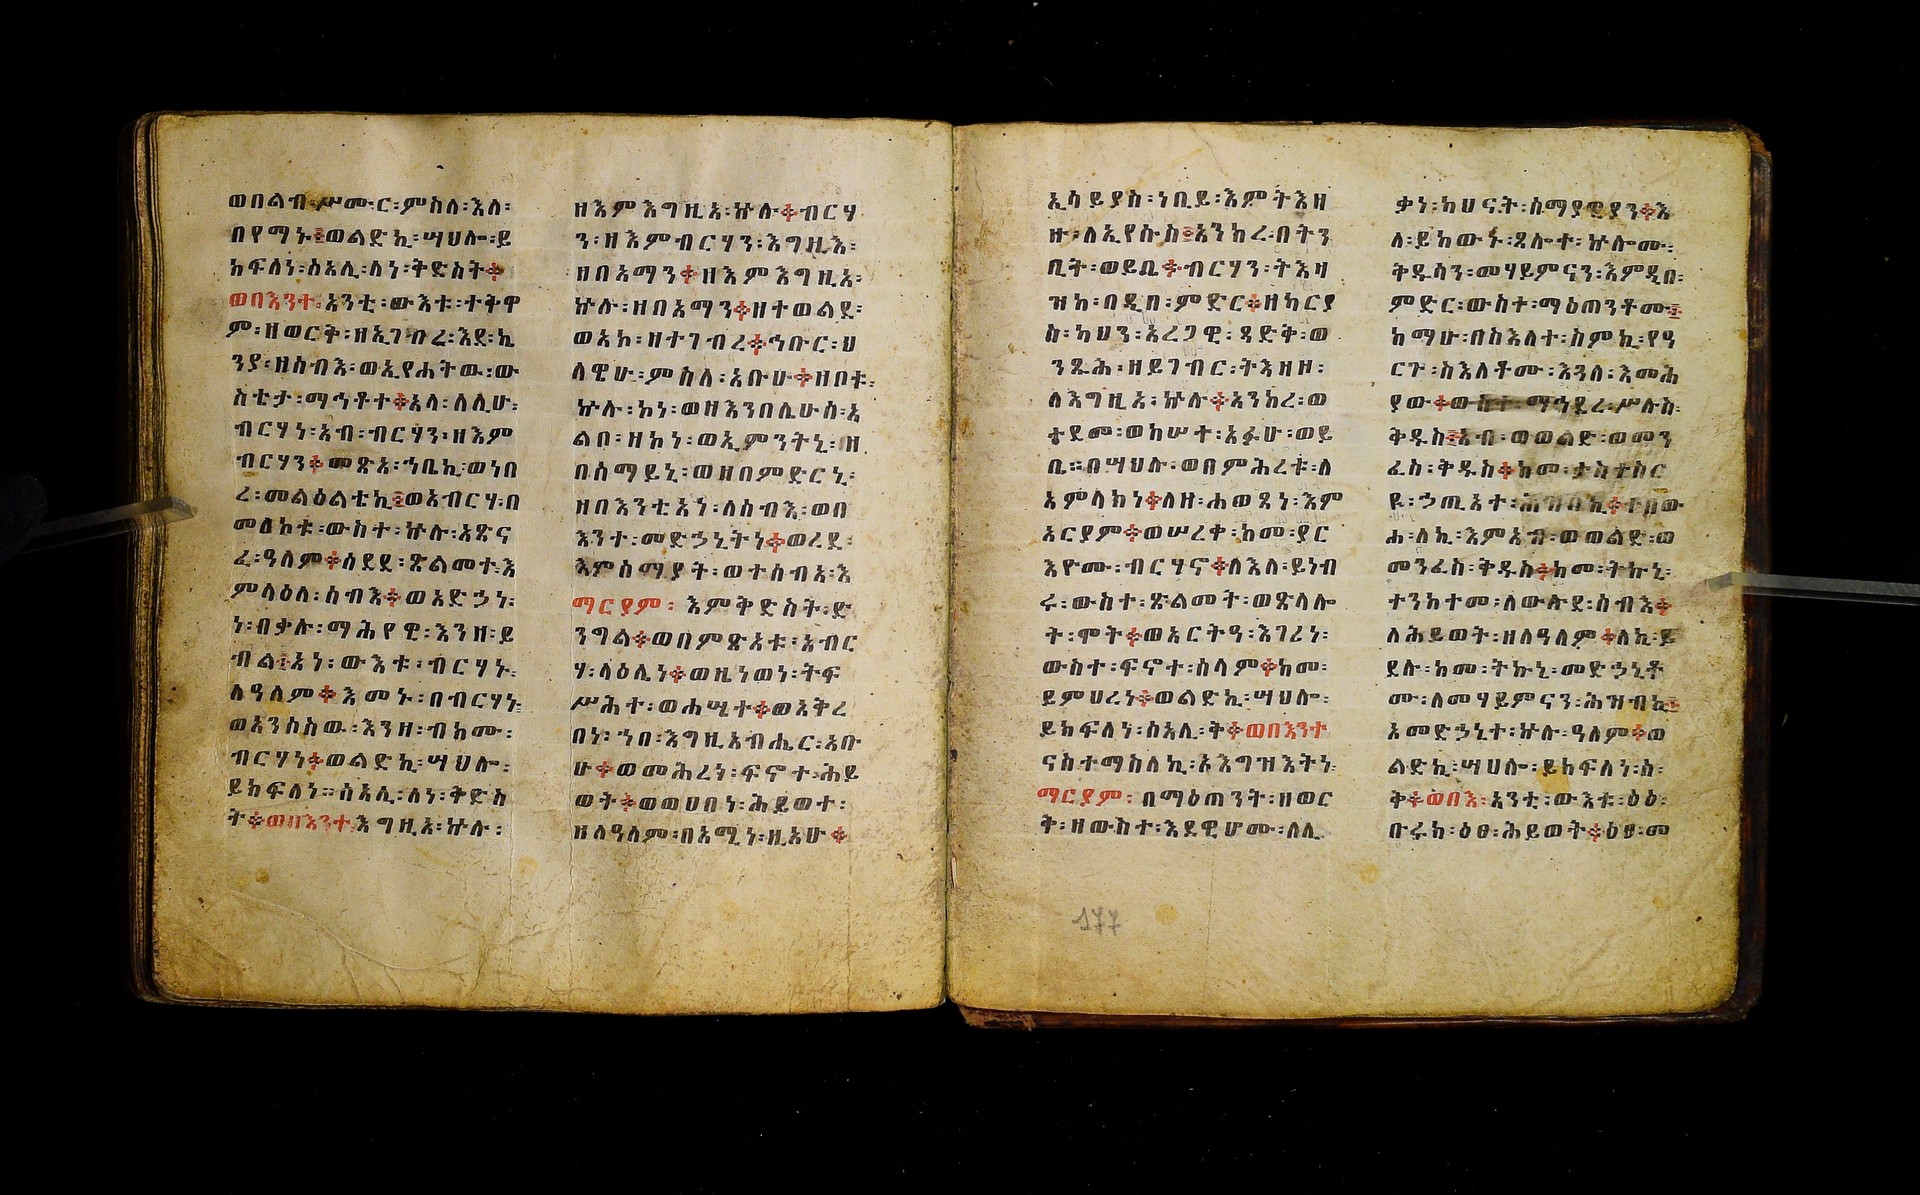 ወበልብ፡ሥሙር፡ምስለ፡እለ፡
በየማኑ፤ወልድኪ፡ሣህሎ፡ይ
ክፍለነ፡ሰአሊ፡ለነ፡ቅድስት፨
ወበእንተ፡አንቲ፡ውእቱ፡ተቅዋ
ም፡ዘወርቅ፡ዘኢገብረ፡እደ፡ኪ
ንያ፡ዘስብእ፡ወኢየሐትዉ፡ው
ስቴታ፡ማኅቶተ፨አላ፡ለሊሁ፡
ብርሃነ፡አብ፡ብርሃን፡ዘእም
ብርሃን፨መጽአ፡ኀቤኪ፡ወነበ
ረ፡መልዕልቴኪ፤ወአብርሃ፡በ
መለኮቱ፡ውስተ፡ኵሉ፡አጽና
ፈ፡ዓለም፨ሰደደ፡ጽልመተ፡እ
ምላዕለ፡ሰብእ፨ወአድኃነ፡
ነ፡በቃሉ፡ማሕየዊ፡እንዘ፡ይ
ብል፤አነ፡ውእቱ፡ብርሃኑ፡
ለዓለም፨እመኑ፡በብርሃኑ፡
ወአንሶስዉ፡እንዘ፡ብክሙ፡
ብርሃነ፨ወልድኪ፡ሣህሎ፡
ይክፍለነ።ሰአሊ፡ለነ፡ቅድስ
ት፨ወበእንተ፡እግዚአ፡ኵሉ፡
ዘእምእግዚአ፡ኵሉ፨ብርሃ
ን፡ዘእምብርሃን፡እግዚእ፡
ዘበአማን፨ዘእምእግዚአ፡
ኵሉ፡ዘበአማን፨ዘተወልደ፡
ወአኮ፡ዘተገብረ፨ኅቡር፡ህ
ላዌሁ፡ምስለ፡አቡሁ፨ዘቦቱ፡
ኵሉ፡ኮነ፡ወዘእንበሌሁስ፡አ
ልቦ፡ዘኮነ፡ወኢምንትኒ፡ዘ
በሰማይኒ፡ወዘበምድርኒ፡
ዘበእንቲአነ፡ለሰብእ፡ወበ
እንተ፡መድኃኒትነ፨ወረደ፡
እምሰማያት፡ወተሰብአ፡እ
ማርያም፡እምቅድስት፡ድ
ንግል፨ወበምጽአቱ፡አብር
ሃ፡ላዕሌነ፨ወዜነወነ፡ትፍ
ሥሕተ፡ወሐሤተ፨ወአቅረ
በነ፡ኀበ፡እግዚአብሔር፡አቡ
ሁ፨ወመሕረነ፡ፍኖተ፡ሕይ
ወት፨ወወሀበነ፡ሕይወተ፡
ዘለዓለም፡በአሚነ፡ዚአሁ፨
ኢሳይያስ፡ነቢይ፡እምትእዘ
ዙ፡ለኢየሱስ፤አንከረ፡በትን
ቢት፡ወይቤ፨ብርሃን፡ትእዛ
ዝከ፡በዲበ፡ምድር፨ዘካርያ
ስ፡ካህን፡አረጋዊ፡ጻድቅ፡ወ
ንጹሕ፡ዘይገብር፡ትእዘዘ፡
ለእግዚአ፡ኵሉ፨አንከረ፡ወ
ተደመ፡ወከሠተ፡አፉሁ፡ወይ
ቤ።በሣህሉ፡ወበምሕረቱ፡ለ
አምላክነ፨ለዘ፡ሐወጸነ፡እም
አርያም፨ወሠረቀ፡ከመ፡ያር
እዮሙ፡ብርሃኖ፨ለእለ፡ይነብ
ሩ፡ውስተ፡ጽልመት፡ወጽላሎ
ት፡ሞት፨ወአርትዓ፡እገሪነ፡
ውስተ፡ፍኖተ፡ሰላም፨ከመ፡
ይምሀረነ፨ወልድኪ፡ሣህሎ፡
ይክፍለነ፡ሰአሊ፡ቅ፨ወበእንተ
ናስተማስለኪ፡ኦእግዝእትነ፡
ማርያም፡በማዕጠንት፡ዘወር
ቅ፡ዘውስተ፡እደዊሆሙ፡ለሊ
ቃነ፡ካህናት፡ሰማያዊያን፨እ
ለ፡ይከውኑ፡ጸሎተ፡ኵሎሙ፡
ቅዱሳን፡መሃይምናን፡እምዲበ፡
ምድር፡ውስተ፡ማዕጠንቶሙ፤
ከማሁ፡በስእለተ፡ስምኪ፡የዓ
ርጉ፡ስእለቶሙ፡እጓለ፡እመሕ
ያው፨ውስተ፡ማኅደረ፡ሥሉስ፡
ቅዱስ፤አብ፡ወወልድ፡ወመን
ፈስ፡ቅዱስ፨ከመ፡ታስተስር
ዪ፡ኃጢአተ፡ሕዝብኪ፨ተበው
ሐ፡ለኪ፡እምአብ፡ወወልድ፡ወ
መንፈስ፡ቅዱስ፨ከመ፡ትኩኒ፡
ተንከተመ፡ለውሉደ፡ሰብእ፨
ለሕይወት፡ዘለዓለም፨ለኪ፡ይ
ደሉ፡ከመ፡ትኩኒ፡መድኃኒቶ
ሙ፡ለመሃይምናን፡ሕዝብኪ፤
አመድኃኒተ፡ኵሉ፡ዓለም፨ወ
ልድኪ፡ሣህሎ፡ይክፍለነ፡ሰ፡
ቅ፨ወበእ፡አንቲ፡ውእቱ፡ዕፅ፡
ቡሩክ፡ዕፀ፡ሕይወት፨ዕፀ፡መ
177